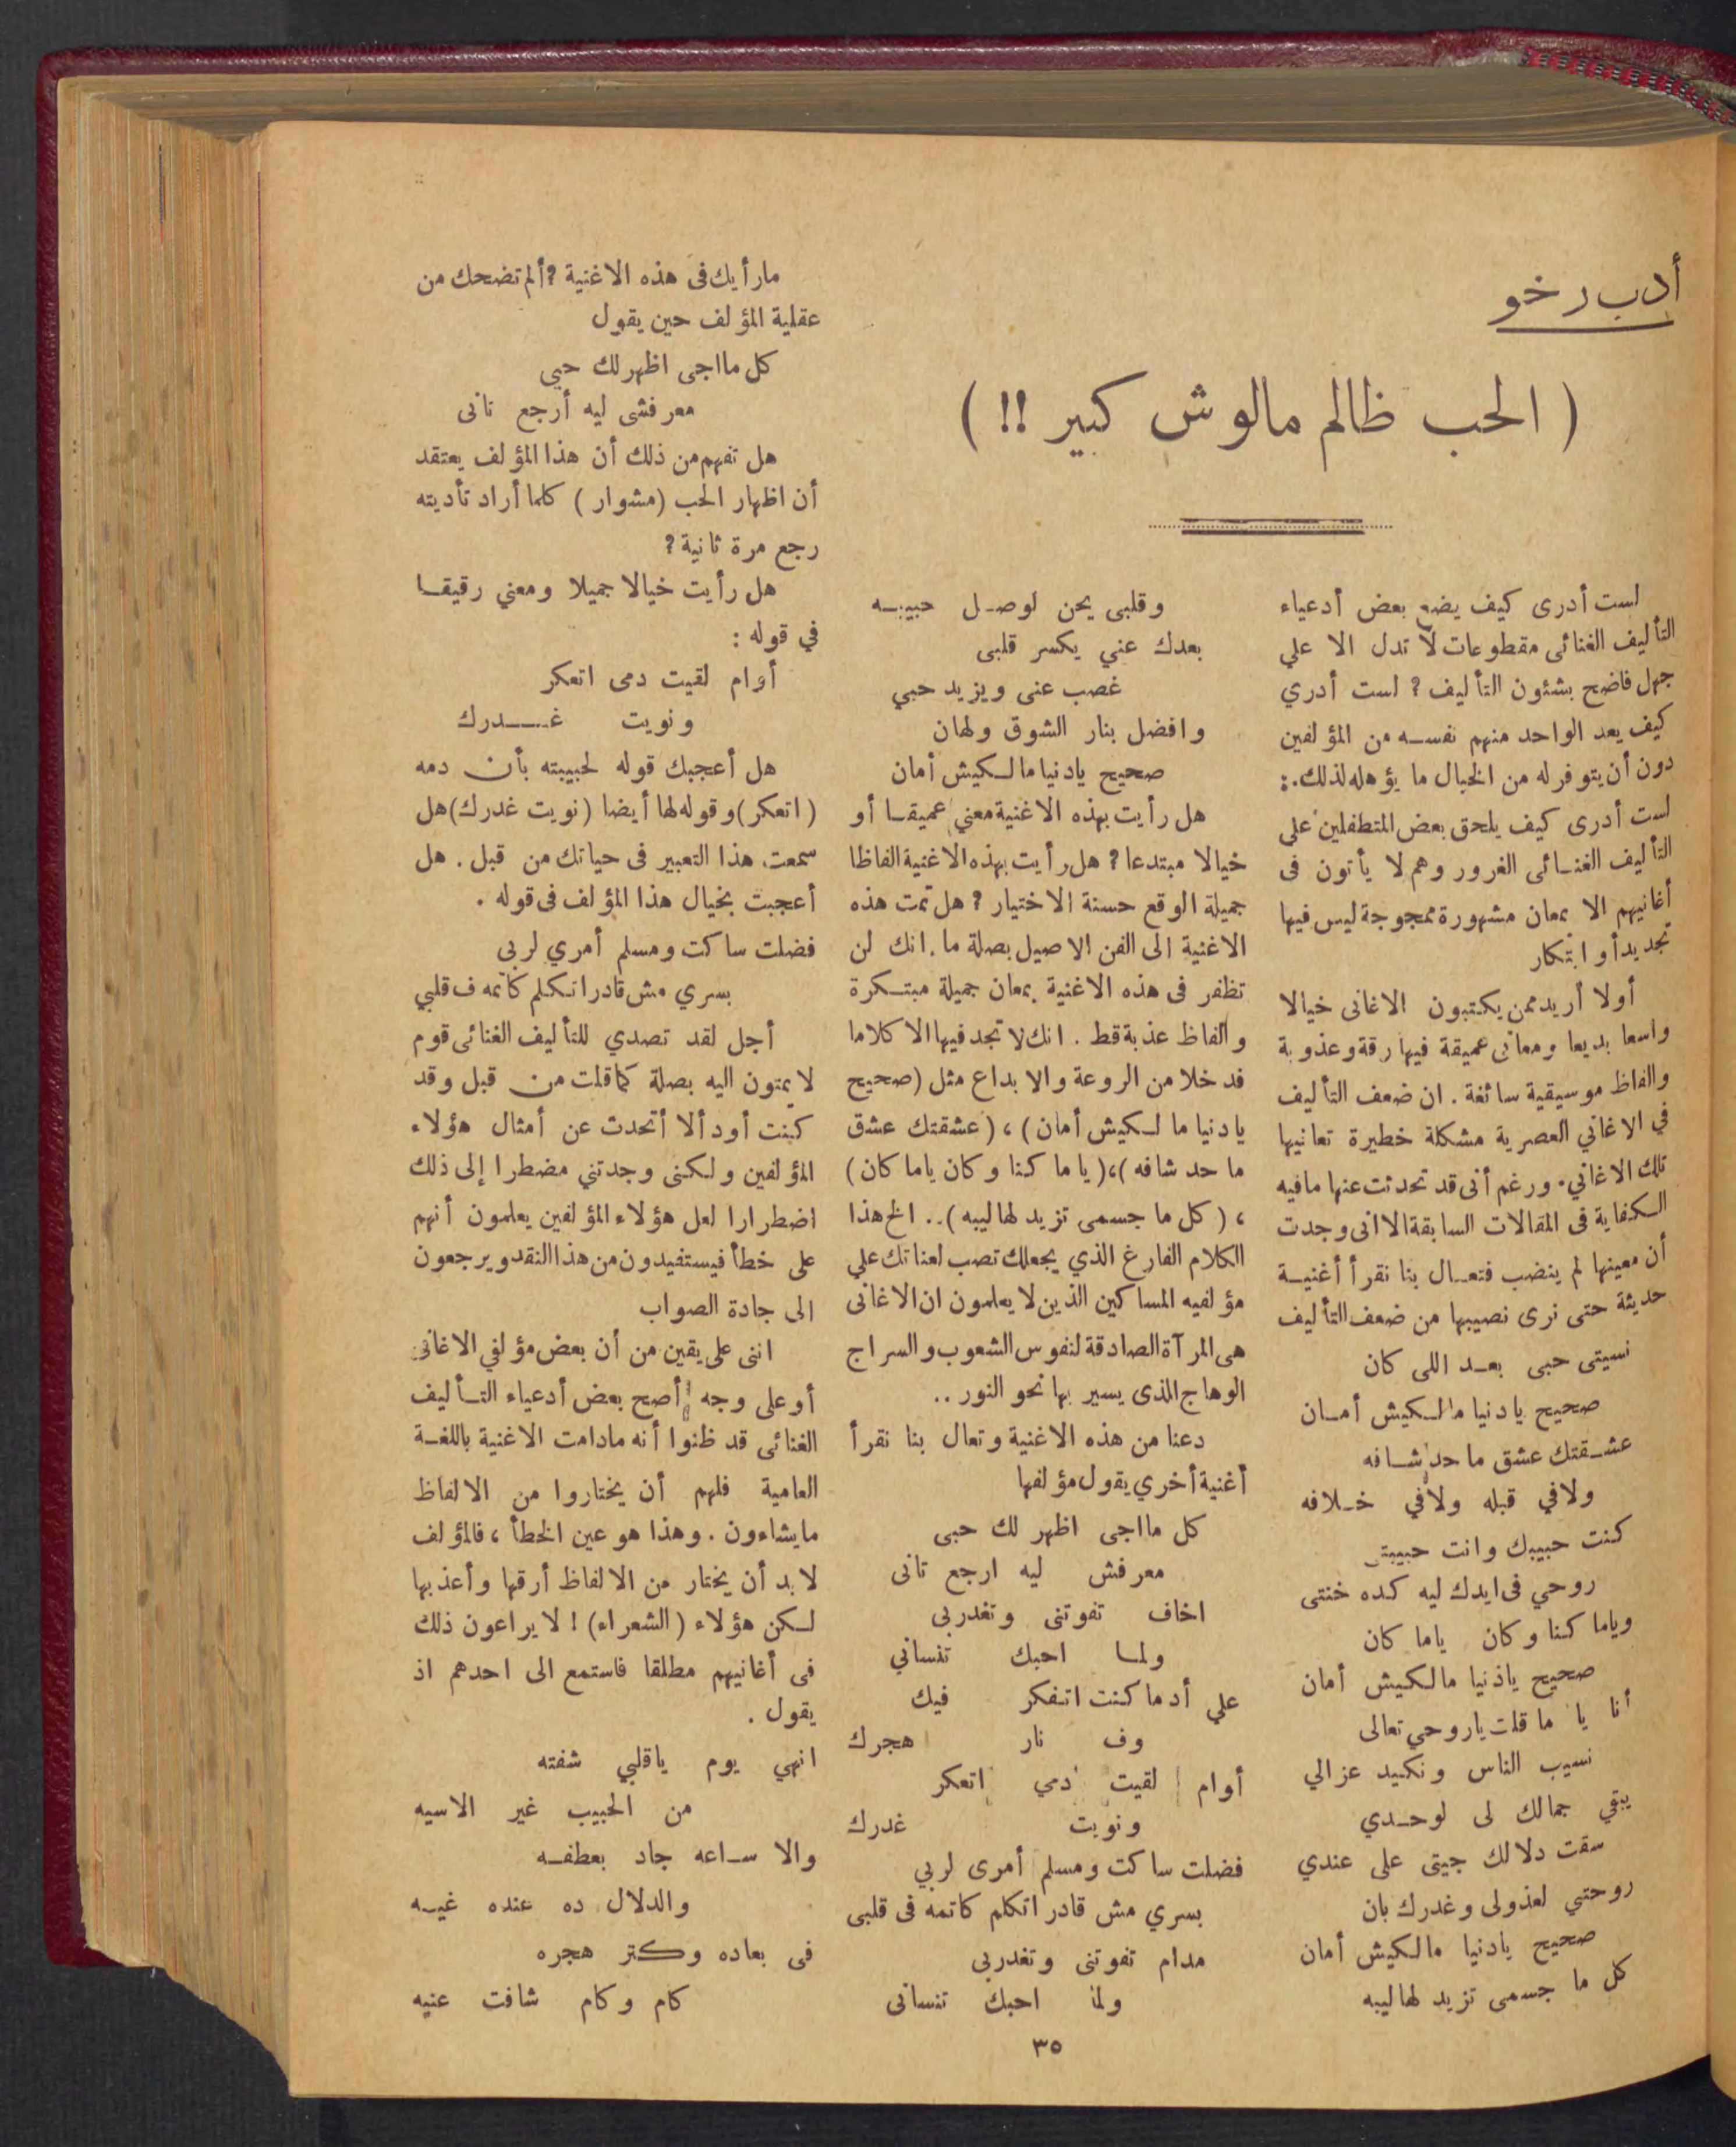 أدب رخو
( الحب ظالم مالوش كبير !! )
لست أدرى كيف يضع بعض أدعياء
التأليف الغنائى مقطوعات لا تدل الا علي
جهل فاضح بشئون التأليف ؟ لست أدري
كيف يعد الواحد منهم نفسه من المؤلفين
دون أن يتوفر له من الخبال ما يؤهله لذلك.:
لست أدرى كيف يلحق بعض المتطفلين على
التأليف الغنائى الغرور وهم لا يأتون فى
أغانيهم الا بمعان مشهورة ممجوجة ليس فيها
تجديدأو ابتكار
أولا أريد ممن يكتبون الاغانى خيالا
واسعا بديعا ومعانى عميقة فيها رقة وعذوبة
والفاظ موسيقية سائغة . ان ضعف التأليف
في الاغاني العصرية مشكلة خطيرة تعانيها
تلك الاغاني. ورغم أنى قد تحدثت عنها مافيه
الكفاية فى المقالات السابقة الا انى وجدت
أن معينها لم ينضب فتعال بنا نقرأ أغنية
حديثة حتى نرى نصيبها من ضعف التأليف
نسيتى حبى بعد اللى كان
صحيح يادنيا مالكيش أمان
عشقتك عشق ما حد شافه
ولافي قبله ولافي خلافه
كنت حبيبك وانت حبيبتى
روحي فى ايدك ليه كده خنتى
وياما كنا وكان ياما كان
صحيح ياذنيا مالكيش أمان
أنا يا ما قلت ياروحي تعالى
نسيب الناس ونكيد عزالي
يبقي جمالك لى لوحدي
سقت دلالك جيتى على عندي
روحتي لعذولى وغدرك بان
صحيح يادنيا مالكيش أمان
كل ما جسمى تزيد لهاليبه
وقلبى يحن لوصل حبيبه
بعدك عني يكسر قلبى
غصب عنى ويزيد حبي
وافضل بنار الشوق ولهان
صحيح يادنيا مالكيش أمان
هل رأيت بهذه الاغنية معني عميقا أو
خيالا مبتدعا ؟ هل رأيت بهذه الاغنية الفاظا
جميلة الوقع حسنة الاختيار ؟ هل تمت هذه
الاغنية الى الفن الاصيل بصلة ما . انك لن
تظفر فى هذه الاغنية بمعان جميلة مبتكرة
والفاظ عذبة قط . انك لا تجد فيها الا كلاما
قد خلا من الروعة والابداع مثل (صحيح
يادنيا ما لكيش أمان) ، (عشقتك عشق
ما حد شافه)،(ياما كنا وكان ياما كان)
، (كل ما جسمى تزيد لهاليبه) .. الخ هذا
الكلام الفارغ الذي يجعلك تصب لعناتك علي
مؤلفيه المساكين الذين لا يعلمون ان الاغانى
هى المرآة الصادقة لنفوس الشعوب والسراج
الوهاج الذى يسير بها نحو النور ..
دعنا من هذه الاغنية وتعال بنا نقرأ
أغنية أخري يقول مؤلفها
كل مااجى اظهر لك حبى
معرفش ليه ارجع تانى
اخاف تفوتنى وتغدربى
ولما احبك تنساني
علي أد ما كنت اتفكر فيك
وف نار هجرك
أوام لقيت دمي اتعكر
ونويت غدرك
فضلت ساكت ومسلم أمرى لربي
بسري مش قادر اتكلم كاتمه فى قلبى
مدام تفوتنى وتغدربى
ولما احبك تنسانى
مارأيك فى هذه الاغنية ؟ ألم تضحك من
عقلية المؤلف حين يقول
كل مااجى اظهر لك حبى
معرفشى ليه أرجع تانى
هل تفهم من ذلك أن هذا المؤلف يعتقد
أن اظهار الحب (مشوار) كلما أراد تأديته
رجع مرة ثانية ؟
هل رأيت خيالا جميلا ومعني رقيقا
في قوله :
أوام لقيت دمى اتعكر
ونويت غدرك
هل أعجبك قوله لحبيبته بأن دمه
(اتعكر) وقوله لها أيضا (نويت غدرك) هل
سمعت هذا التعبير فى حياتك من قبل . هل
أعجبت بخيال هذا المؤلف فى قوله .
فضلت ساكت ومسلم أمري لربى
بسري مش قادر اتكلم كاتمه ف قلبي
أجل لقد تصدي للتأليف الغنائى قوم
لا يمتون اليه بصلة كما قلت من قبل وقد
كنت أود ألا أتحدث عن أمثال هؤلاء
المؤلفين ولكنى وجدتني مضطرا إلى ذلك
اضطرارا لعل هؤلاء المؤلفين يعلمون أنهم
على خطأ فيستفيدون من هذا النقد ويرجعون
الى جادة الصواب
اننى على يقين من أن بعض مؤلفي الاغانى
أو على وجه أصح بعض أدعياء التأليف
الغنائى قد ظنوا أنه مادامت الاغنية باللغة
العامية فلهم أن يختاروا من الالفاظ
مايشاءون . وهذا هو عين الخطأ ، فالمؤلف
لابد أن يختار من الالفاظ أرقها وأعذبها
لكن هؤلاء (الشعراء) ! لا يراعون ذلك
فى أغانيهم مطلقا فاستمع الى احدهم اذ
يقول .
انهي يوم ياقلبي شفته
من الحبيب غير الاسيه
والا ساعه جاد بعطفه
والدلال ده عنده غيه
فى بعاده وكتر هجره
كام وكام شافت عنيه
٣٥